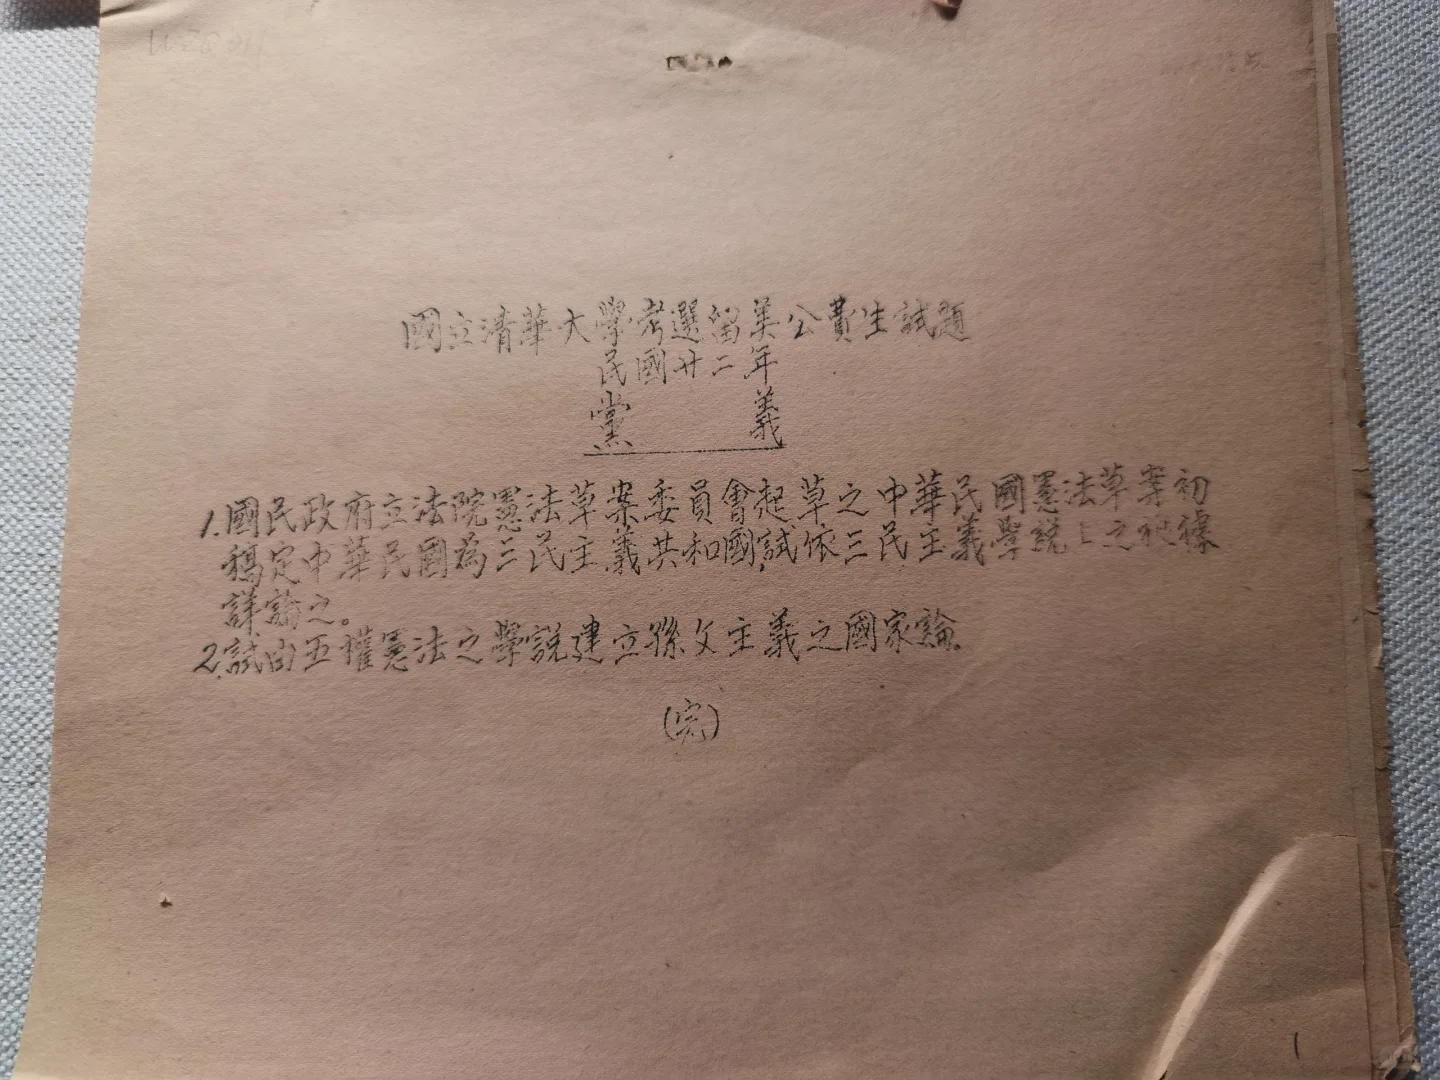 國立清華大學考選留美公費生試題
民國廿二年
黨 義
1.國民政府立法院憲法草案委員會起草之中華民國憲法草案初
稿定中華民國為三民主義共和國,試依三民主義學統上之根據
詳論之。
2.試由五權憲法之學說建立孫文主義之國家論.
(完)
1